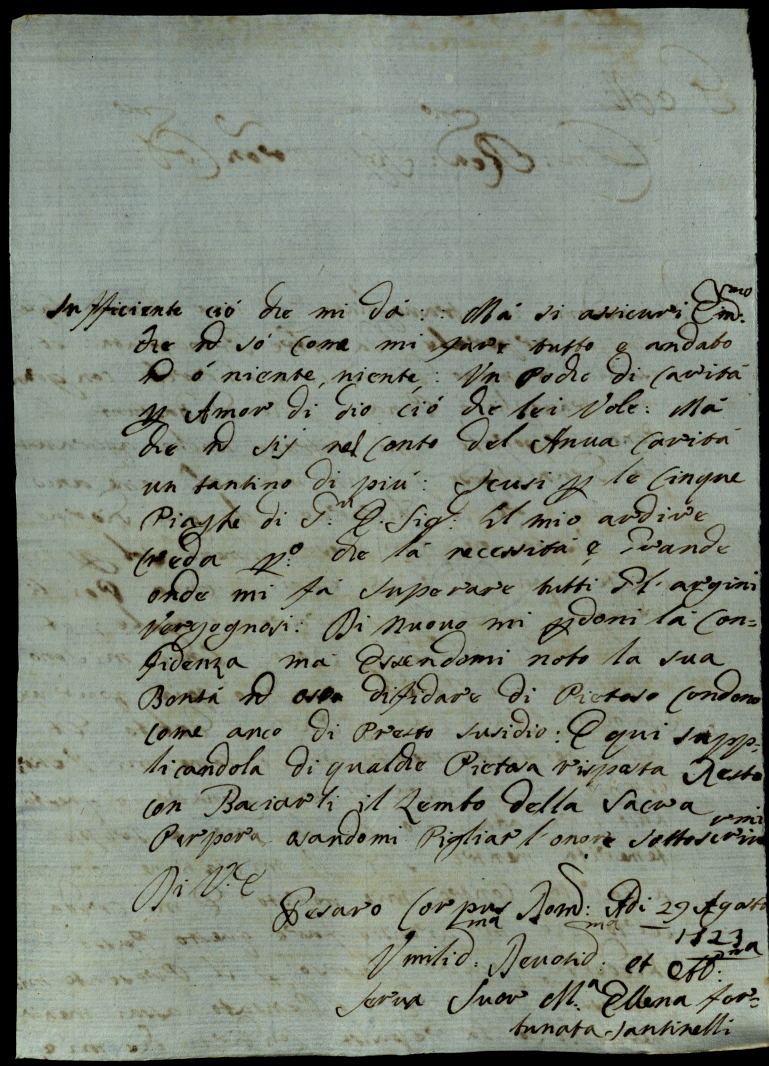 Sufficiente ció che mi dá : Má si assicuri Em:mo
che nō só come mi fare tutto e andato
nō ó niente, niente,: Un Poche di Caritá
p Amor di Dio ció che lei Vole: Má
che nō sij nel Conto del Anua Caritá
un tantino di più: Scusi p le Cinque
Piaghe di G. Sig: il mio ardire
Creda p:o che lá necessitá é Grande
onde mi fá superare tutti Gl'argini
Vergognosi: Di Nuovo mi pdoni lá Con=
fidenza má Essendomi noto la sua
Bontá nō oso difidare di Pietoso Condono
come anco di Presto susidio: E qui supp=
licandola di qualche Pietosa risposta Resto
con Baciarli il Lembo della Sacra
Porpora osandomi Pigliar l onore sottoscrivermi
Di V:E
Pesaro Corpus Dom: Adi 29 Agosto
1823
Vmilis:ma Devotis:ma et Obb:ma
Serva Suor M:a Ellena For=
tunata Santinelli